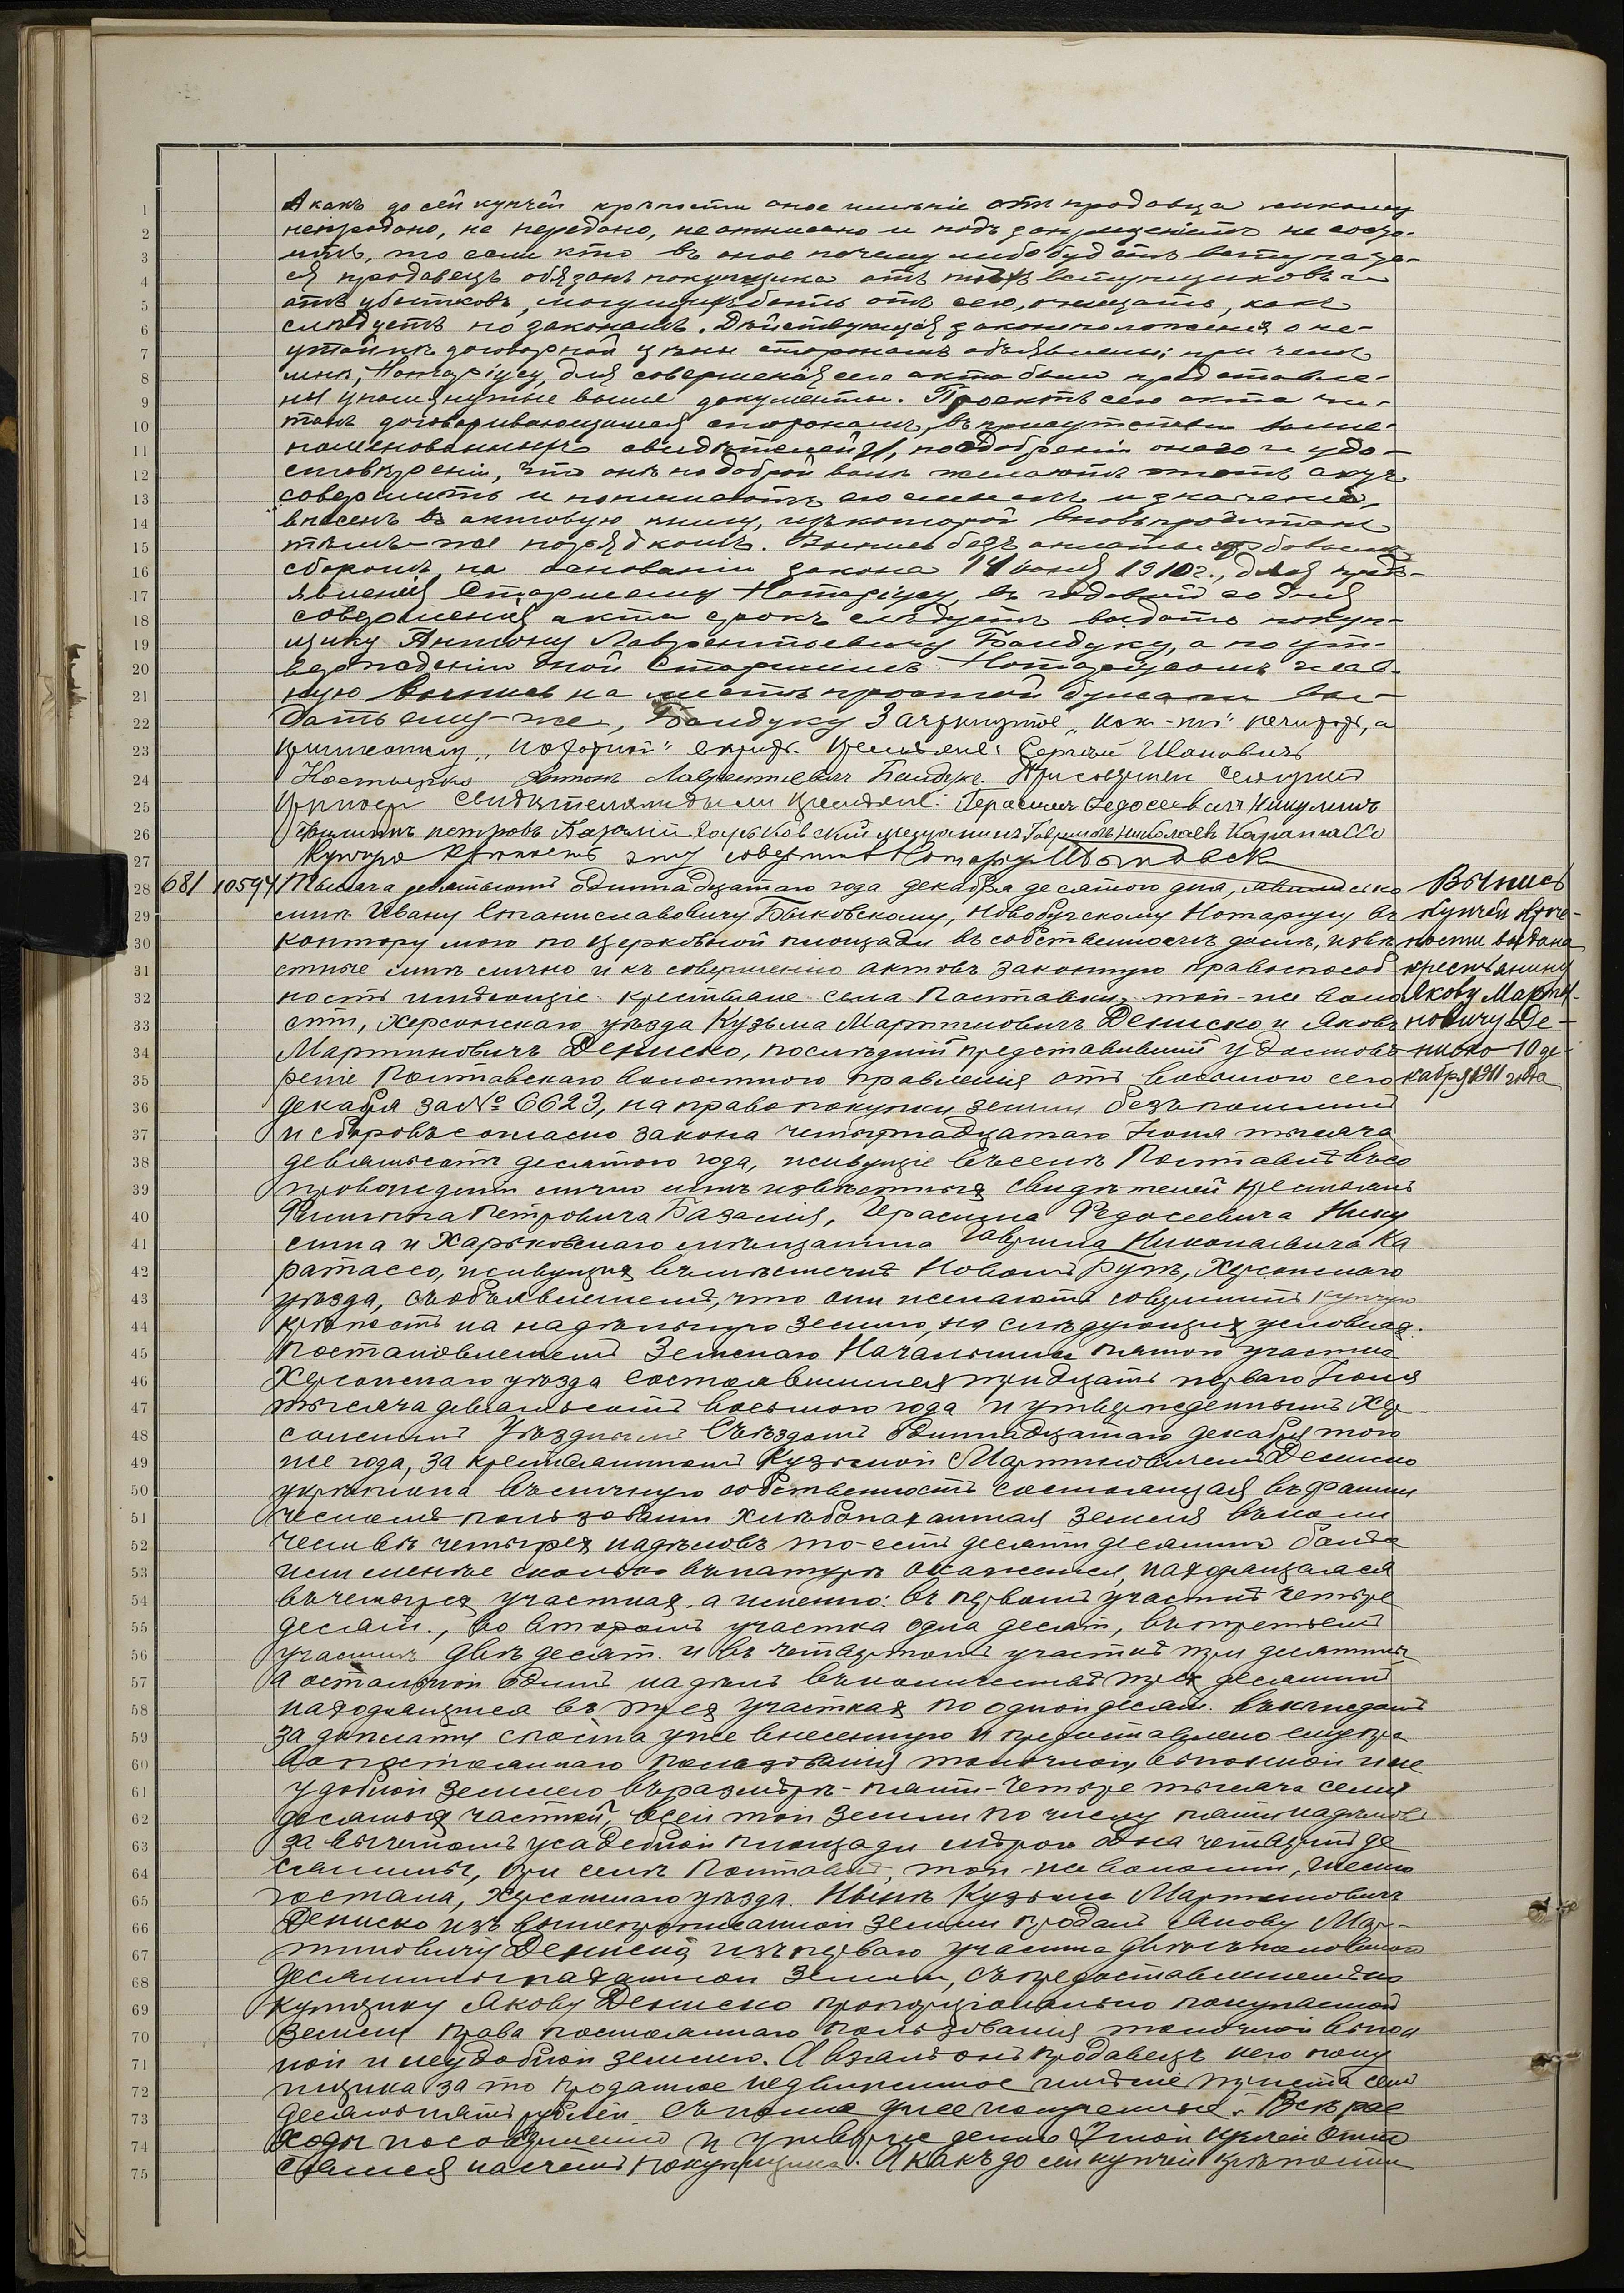 А какъ до сей купчей крѣпости оное имѣніе отъ продавца никому
непродано, не передано, не отписано и подъ запрещеніемъ не состо-
итъ, то если кто въ оное почему либо будетъ вступаться-
ся продавецъ обязанъ покупщика отъ тѣхъ вступщиковъ и
отъ убытковъ, могущихъ быть отъ сего, очищать, какъ
слѣдуетъ по законамъ. Дѣйствующія законоположенія о не-
утайкѣ договорной цѣны сторонамъ объявлены; при чемъ
мнѣ, Нотаріусу, для совершенія сего акта были представле-
ны упомянутые выше документы. Проектъ сего акта чи-
танъ договаривающимся сторонамъ, въ присутствіи выше-
поименованныхъ свидѣтелей, по одобреніи онаго и удо-
стовѣреніи, что они по доброй волѣ желаютъ этотъ актъ
совершить и понимаютъ его смыслъ и значеніе,
внесенъ въ актовую книгу, изъ которой вновь прочитанъ
тѣмъ-же порядкомъ. Выпись безъ оплаты гербовымъ
сборомъ, на основаніи закона 14 іюня 1910 г., для предъ-
явленія Старшему Нотаріусу, въ годовой со дня
совершенія акта срокъ слѣдуетъ выдать покуп-
щику Антону Лаврентьевичу Бандуку, а по ут-
вержденіи оной Старшимъ Нотаріусомъ глав-
ную выпись на листѣ простой бумаги вы-
дать ему-же, Бандуку Зачеркнутое нечитать, а
Сергѣй Ивановичъ
Антонъ Лаврентіевичъ Бандукъ. При совершеніи сей купчей
крѣпости свидѣтелями были крестьяне: Герасимъ Федосеевичъ Никулинъ
Филиппъ Петровъ Базалій Харьковскій мещанинъ Гавриилъ Николаевъ Каратассо
Купчую крѣпость эту совершилъ Нотаріусъ
681 10594 Тысяча девятьсотъ одиннадцатаго года декабря десятаго дня, явились ко
мнѣ Ивану Станиславовичу Быковскому, Новобугскому Нотаріусу въ
контору мою по Церковной площади въ собственномъ домѣ, извѣ
стные мнѣ лично и къ совершенію актовъ законную правоспособ
ность имѣющіе крестьяне села Полтавки, той-же воло
сти, Херсонскаго уѣзда Кузьма Мартиновичъ Дениско и Яковъ
Мартиновичъ Дениско, послѣдній представившій удостовѣ
реніе Полтавскаго волостного правленія отъ восьмого сего
декабря за № 6623, на право покупки земли безъ пошлинъ
и сборовъ согласно закона четырнадцатаго Іюня тысяча
девятьсотъ десятаго года, живущіе въ селѣ Полтавкѣ въ со
провожденіи лично мнѣ извѣстныхъ свидѣтелей крестьянъ
Филиппа Петровича Базалія, Герасима Федосеевича Нику
лина и Харьковскаго мѣщанина Гавриила Николаевича Ка
ратассо, живущихъ въ мѣстечкѣ Новомъ Бугѣ, Херсонскаго
уѣзда, съ объявленіемъ, что они желаютъ совершить купчую
крѣпость на надѣльную землю, на слѣдующихъ условіяхъ.
Постановленіемъ Земскаго Начальника пятаго участка
Херсонскаго уѣзда состоявшимся тридцать перваго Іюля
тысяча девятьсотъ восьмого года и утвержденнымъ Хер-
сонскимъ Уѣзднымъ Съѣздомъ одиннадцатаго декабря того
же года, за крестьяниномъ Кузьмой Мартиновичемъ Дениско
укрѣплена въ личную собственность состоящая въ факти
ческомъ пользованіи хлѣбопахатная земля въ коли
чествѣ четырехъ надѣловъ то-есть десяти десятинъ болѣе
или менѣе сколько въ натурѣ окажется, находящаяся
въ четырехъ участкахъ, а именно: въ первомъ участкѣ четыре
десят., во второмъ участкѣ одна десят., въ третьемъ
участкѣ двѣ десят. и въ четвертомъ участкѣ три десятины
а остальной одинъ надѣлъ въ количествѣ трехъ десятинъ
находящійся въ трехъ участкахъ по одной десят. въ каждомъ
за доплату уже внесенную и предоставлено ему пра
во постояннаго пользованія толочной, выпасной и не
удобной землею въ размѣрѣ- пяти-четыре тысяча семь
десятыхъ частей, всей той земли по числу пяти надѣловъ
за вычетомъ усадебной площади мѣрою одна четверть де
сятины, при селѣ Полтавкѣ, той-же волости, шесто
го стана, Херсонскаго уѣзда. Нынѣ Кузьма Мартиновичъ
Дениско изъ вышепрописанной земли продалъ Якову Мар-
тиновичу Дениско, изъ перваго участка двѣ съ половиною
десятины пахатной земли, съ предоставленіемъ по
купщику Якову Дениско пропорціонально покупаемой
земли права постояннаго пользованія толочной выпас
ной и неудобной землею. А взялъ онъ продавецъ у него поку
пщика за то проданное недвижимое имѣніе триста семь
десятъ пять рублей, сполна уже полученные. Всѣ рас
ходы по совершенію и утвержденію этой купчей отне
сены на счетъ покупщика. А какъ до сей купчей крѣпости
Выпись
купчей крѣ-
пости выдана
крестьянину
Якову Марти-
новичу Де-
ниско 10 де-
кабря 1911 года